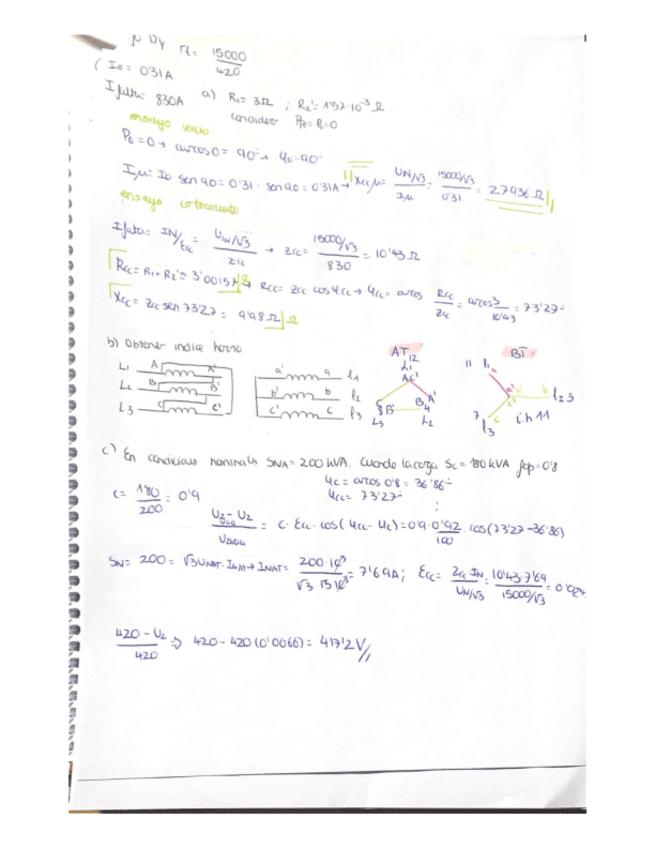 DY rt = 15000/420
( Io = 0'31A
Ifalta: 830A a) R1 = 3Ω ; R2' = 1'57·10^-3 Ω
ensayo vacio
considero Pfe = P0 = 0
P0 = 0 → arcos 0 = 90° → φ0 = 90°
Iμ = Io sen 90 = 0'31 · sen 90 = 0'31A → Xμ = (UN/√3)/Iμ = (15000/√3)/0'31 = 27936 Ω
ensayo
Ifalta = IN/εcc = (UIN/√3)/Zcc → Zcc = (15000/√3)/830 = 10'43 Ω
Rcc = R1 + R2' = 3'00157 Ω → Rcc = Zcc cos φcc → φcc = arcos Rcc/Zcc = arcos 3/10'43 = 73'27°
Xcc = Zcc sen 73'27 = 9'98 Ω
b) Obtener indice horario
L1 A A' a' a l1
L2 B B' b' b l2
L3 C C' c' c l3
AT
12
L1
AC'
C B'
L3
B A'
4
L2
BT
11 l1
a
a' b'
c'
b l2 3
7 c
l3
ih 11
c) En condiciones nominales SNA = 200 kVA. Cuando la carga Sc = 180 kVA fdp = 0'8
φc = arcos 0'8 = 36'86°
φcc = 73'27°
C = 180/200 = 0'9
= C · εcc · cos(φcc - φc) = 0'9 · 0'92/100 · cos(73'27 - 36'86)
SN = 200 = √3 UNAT · INAT → INAT = 200·10^3/√3 15·10^3 = 7'69A ; εcc = Zcc IN/(UN/√3) = 10'43·7'69/(15000/√3) =
420 - U2/420 ⇒ 420 - 420 (0'0066) = 417'2V //